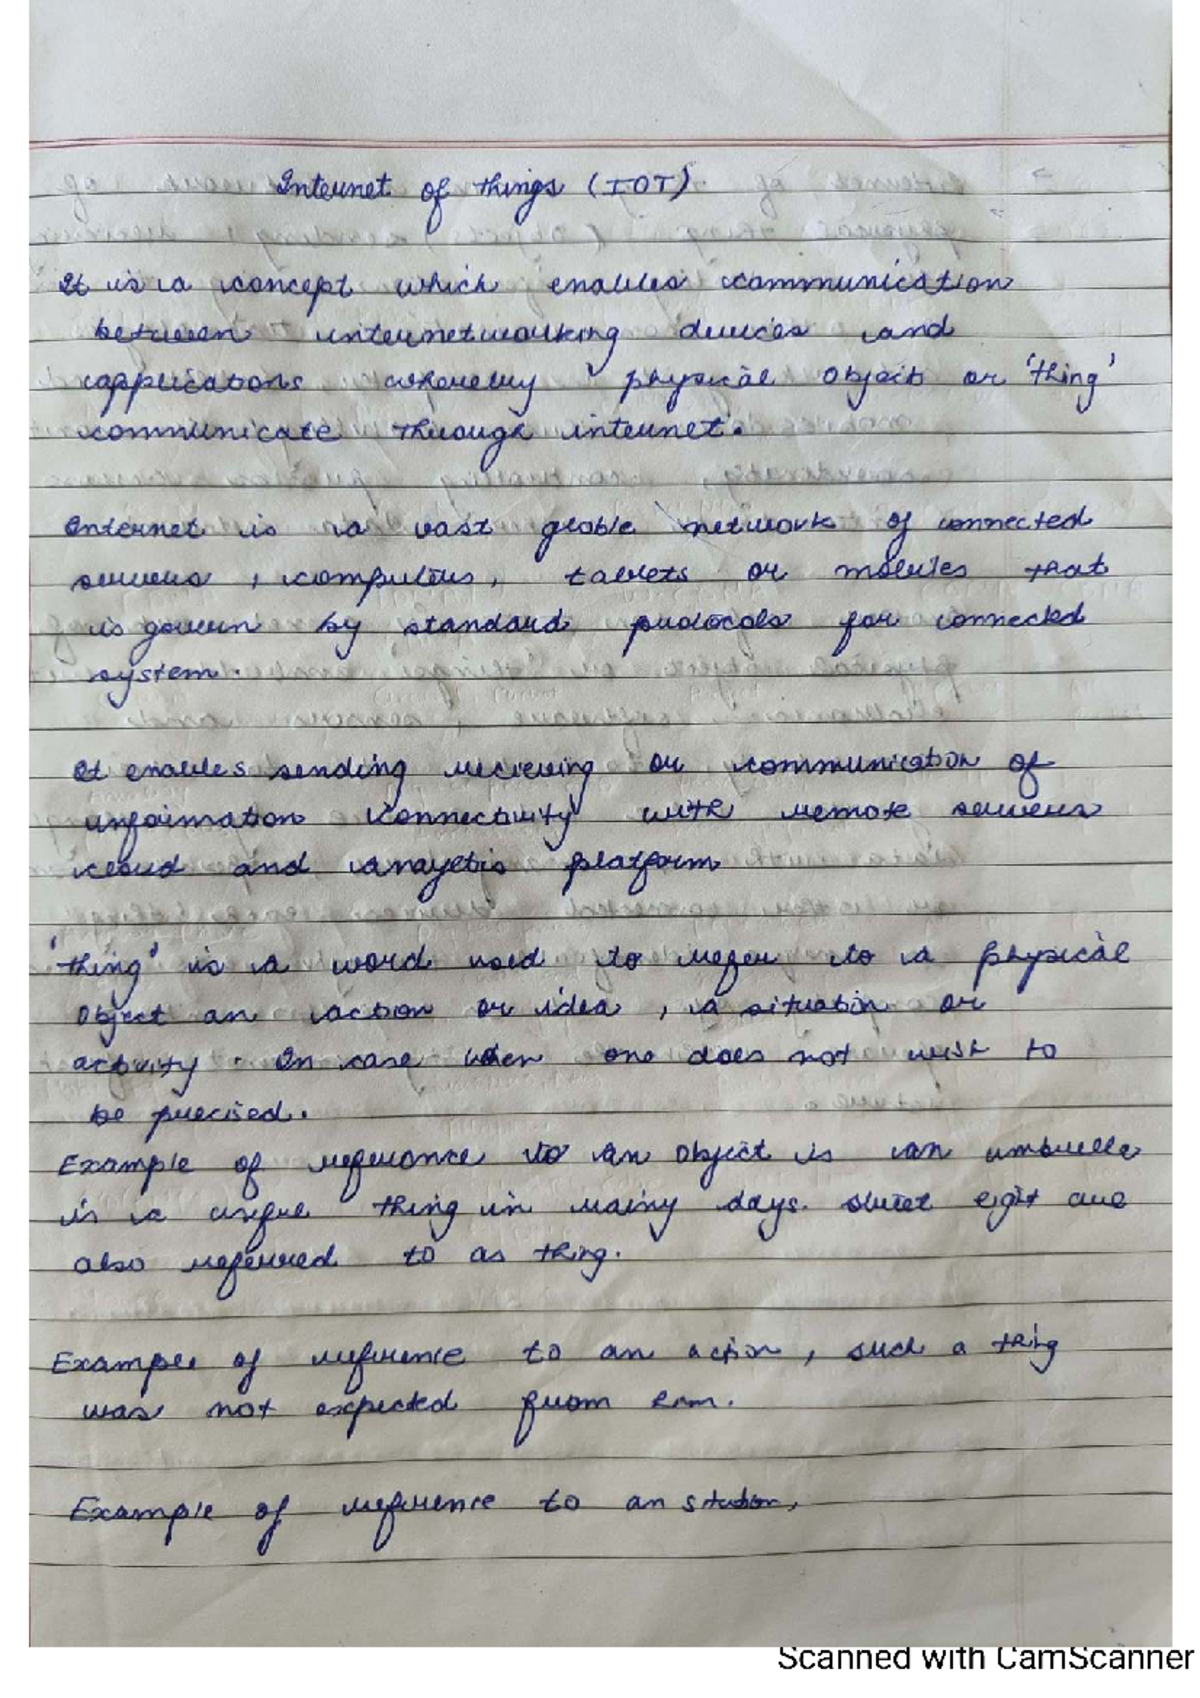 Internet of things (IOT)
It is a concept which enables communication
between internetworking devices and
applications whereby physical object or 'thing'
communicate through internet.
Internet is a vast globle network of connected
servers, computers, tablets or mobiles that
is govern by standard protocols for connected
system.
It enables sending recieving or communication of
information connectivity with remote servers
cloud and platform
'thing' is a word used to refer to a physical
object an action or idea, a situation or
activity. In case when one does not wish to
be precised.
Example of reference to an object is an umbrella
is a thing in rainy days. are
also referred to as thing.
Example of reference to an action, such a thing
was not expected from him.
Example of reference to an
Scanned with CamScanner